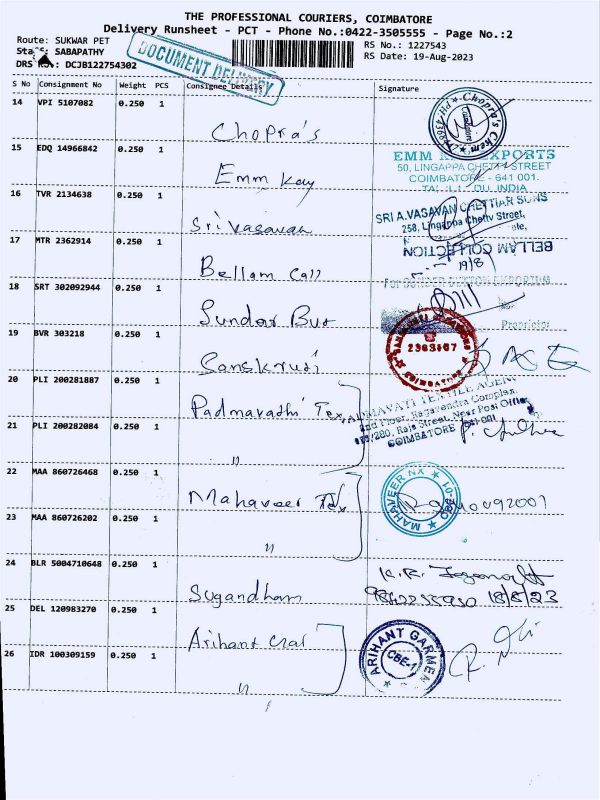 THE PROFESSIONAL COURIERS, COIMBATORE
Delivery Runsheet - PCT - Phone No.:0422-3505555 - Page No.:2
Route: SUKWAR PET
RS No.: 1227543
SABAPATHY
RS Date: 19-Aug-2023
DRS : DCJB122754302
DOCUMENT DELIVERY
S No Consignment No Weight PCS Consignee Details Signature
14 VPI 5107082 0.250 1 Chopra's
Chopra's Chem
15 EDQ 14966842 0.250 1 Emm Kay
EMM EXPORTS
50, LINGAPPA CHETTY STREET
COIMBATORE - 641 001.
INDIA
16 TVR 2134638 0.250 1 Srivasavan
SRI A.VASAVAN CHETTIAR SONS
258, Lingappa Chetty Street,
17 MTR 2362914 0.250 1 Bellam Coll
BELLAM COLLECTION
19/8
18 SRT 302092944 0.250 1 Sundar But
Proprietor
19 BVR 303218 0.250 1 Sanskruti
20 PLI 200281887 0.250 1 Padmavathi Tex
PADMAVATI TEXTILE AGENCY
2nd Floor, Ragavendra Complex,
Raja Street, Near Post Office
COIMBATORE
21 PLI 200282084 0.250 1 "
22 MAA 860726468 0.250 1 Mahaveer Tex
MAHAVEER NX CBE-01
23 MAA 860726202 0.250 1 "
24 BLR 5004710648 0.250 1 Sugandham
K.R.
18/8/23
25 DEL 120983270 0.250 1 Arihant Gar
ARIHANT GARMEN
CBE-1
26 IDR 100309159 0.250 1 "